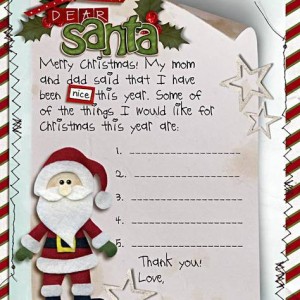 DEAR
santa
Merry Christmas! My mom
and dad said that I have
been nice this year. Some of
of the things I would like for
Christmas this year are:
1.
2.
3.
4.
5.
Thank you!
Love,